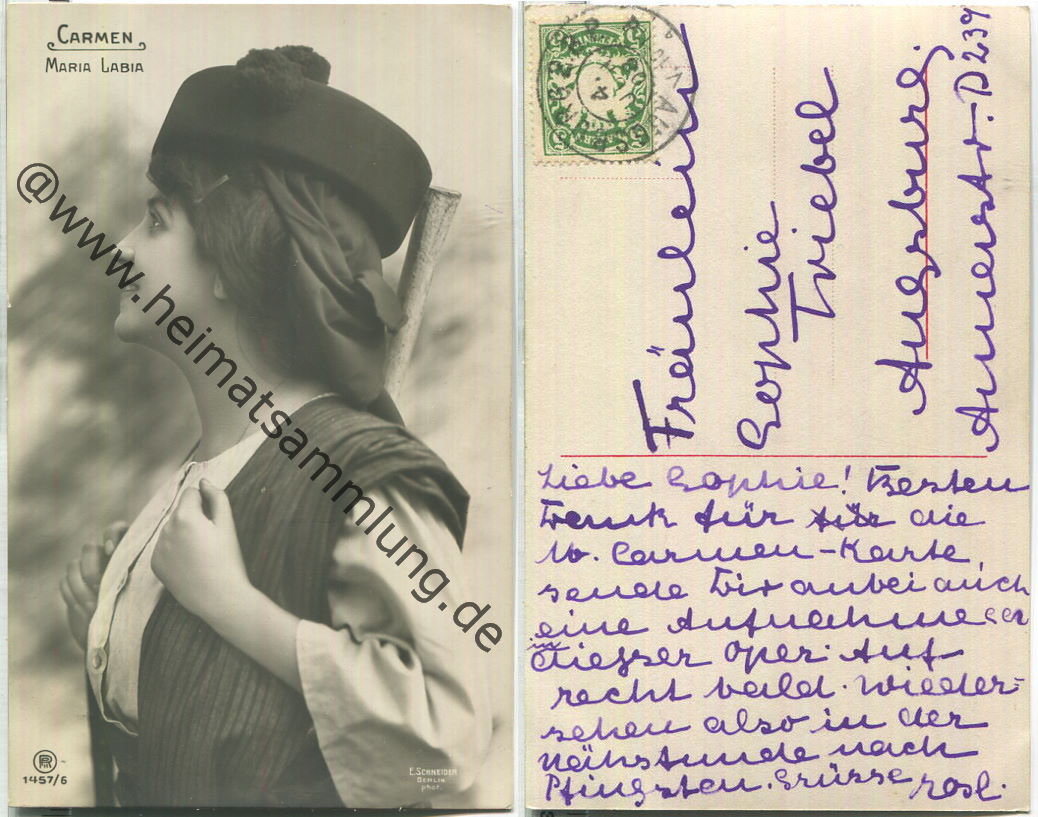 CARMEN
MARIA LABIA
@www.heimatsammlung.de
1457/6
E. SCHNEIDER
BERLIN
phot.
Fräulein
Sophie
Triebel
Augsburg.
Annastr. D 234
Liebe Sophie! Besten
Dank für für die
lb. Carmen-Karte,
sende Dir anbei auch
eine Aufnahme
in dieser Oper. Auf
recht bald. Wieder=
sehen also in der
Nähstunde nach
Pfingsten. Grüsse Rosl.